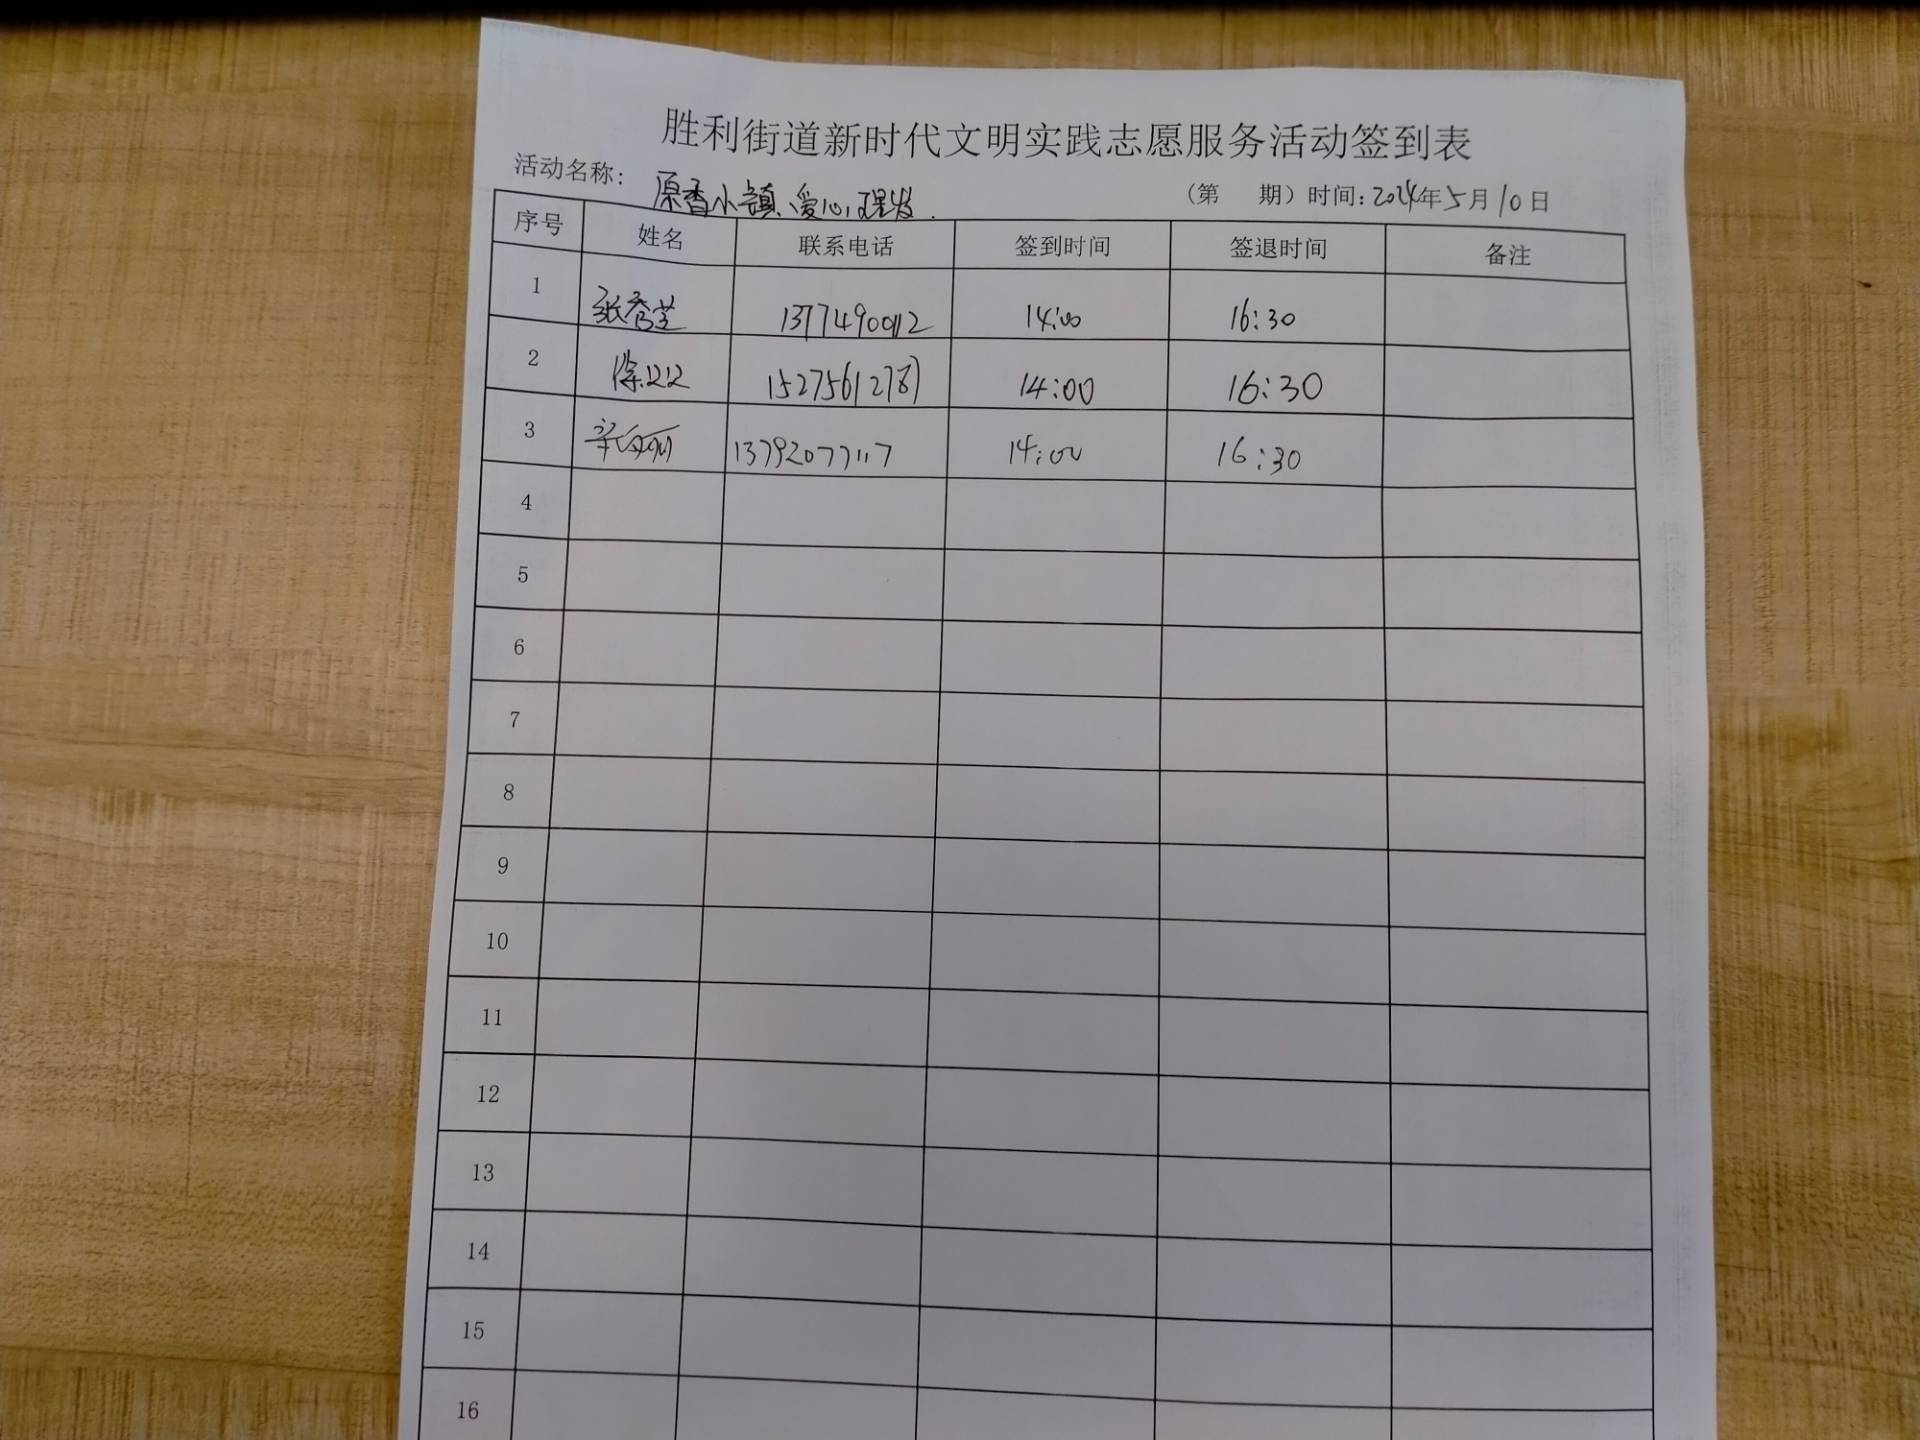 胜利街道新时代文明实践志愿服务活动签到表
活动名称： 原香小镇、爱心理发. （第 期）时间：2024年5月10日
序号 姓名 联系电话 签到时间 签退时间 备注
1 张秀芝 13774900112 14:00 16:30
2 徐 14:00 16:30
3 13792077117 14:00 16:30
4
5
6
7
8
9
10
11
12
13
14
15
16